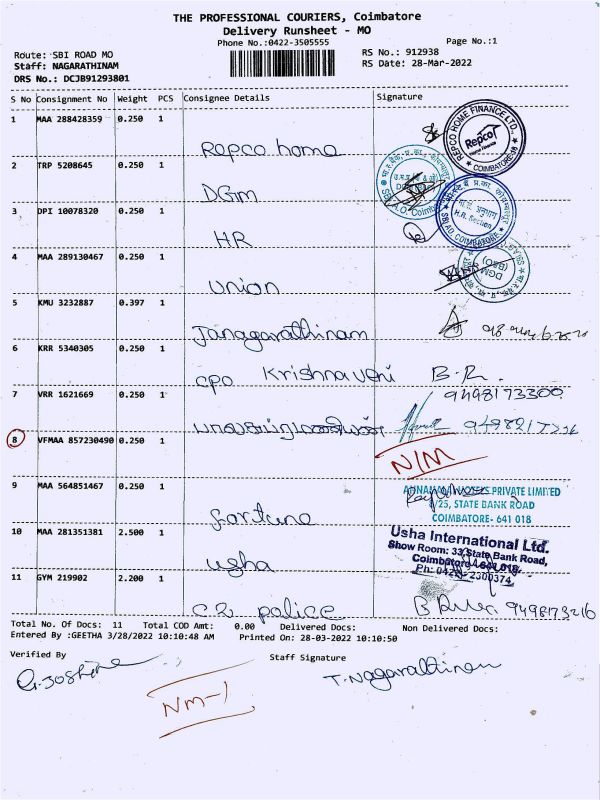 THE PROFESSIONAL COURIERS, Coimbatore
Delivery Runsheet - MO
Phone No.:0422-3505555
Page No.:1
Route: SBI ROAD MO
Staff: NAGARATHINAM
DRS No.: DCJB91293801
RS No.: 912938
RS Date: 28-Mar-2022
S No Consignment No Weight PCS Consignee Details Signature
1 MAA 288428359 0.250 1
Repco home
REPCO HOME FINANCE LTD.,
Repco
Home Finance
COIMBATORE-18
2 TRP 5208645 0.250 1
DGM
3 DPI 10078320 0.250 1
HR
H.R. Section
SBI AO, COIMBATORE
4 MAA 289130467 0.250 1
union
DGM
(B&O)
5 KMU 3232887 0.397 1
Janagarathinam
6 KRR 5340305 0.250 1
CPO Krishnaveni B.R.
9498173300
7 VRR 1621669 0.250 1
8 VFMAA 857230490 0.250 1
N/M
9 MAA 564851467 0.250 1
fortune
PRIVATE LIMITED
/25, STATE BANK ROAD
COIMBATORE- 641 018
10 MAA 281351381 2.500 1
usha
Usha International Ltd.
Show Room: 33, State Bank Road,
Coimbatore - 641 018
Ph: 0422- 2300374
11 GYM 219902 2.200 1
C2 police
9498173216
Total No. Of Docs: 11 Total COD Amt: 0.00 Delivered Docs: Non Delivered Docs:
Entered By :GEETHA 3/28/2022 10:10:48 AM Printed On: 28-03-2022 10:10:50
Verified By
Staff Signature
G.Joshine
T.Nagarathinam
NM-1